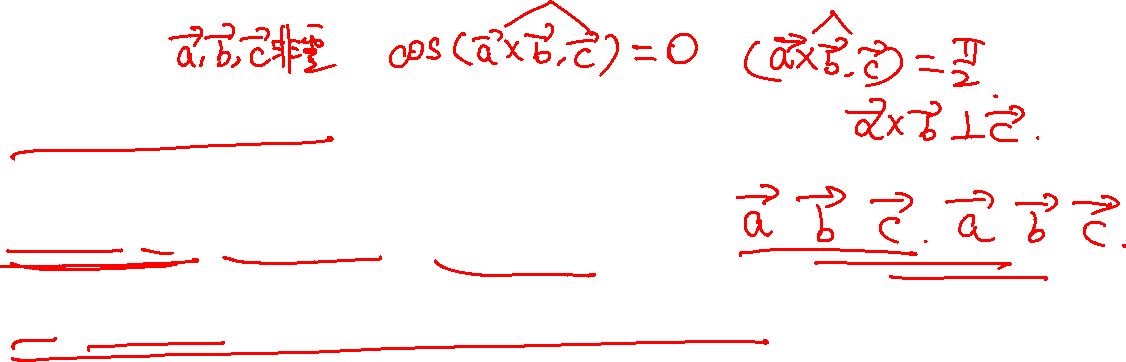 a⃗, b⃗, c⃗ 非零 cos(a⃗×b⃗, c⃗) = 0 (a⃗×b⃗, c⃗) = π/2.
a⃗×b⃗ ⊥ c⃗.
a⃗ b⃗ c⃗. a⃗ b⃗ c⃗.